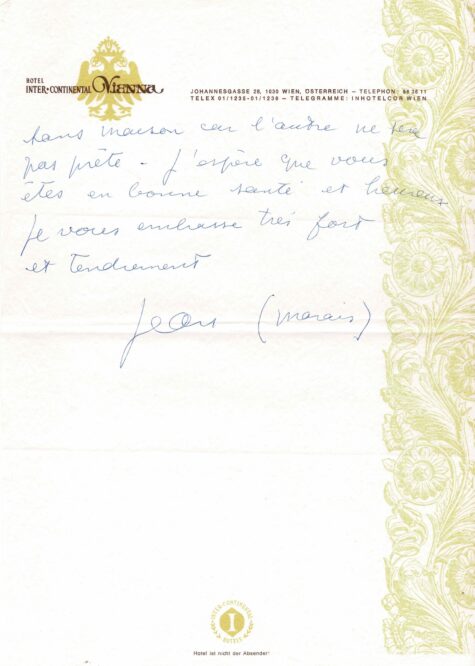 HOTEL
INTER•CONTINENTAL Vienna
JOHANNESGASSE 28, 1030 WIEN, ÖSTERREICH – TELEPHON: 56 36 11
TELEX 01/1235-01/1239 – TELEGRAMME: INHOTELCOR WIEN
sans maison car l'autre ne sera
pas prête. J'espère que vous
êtes en bonne santé et heureux
Je vous embrasse très fort
et tendrement
Jean (Marais)
INTER-CONTINENTAL
I
HOTELS
Hotel ist nicht der Absender